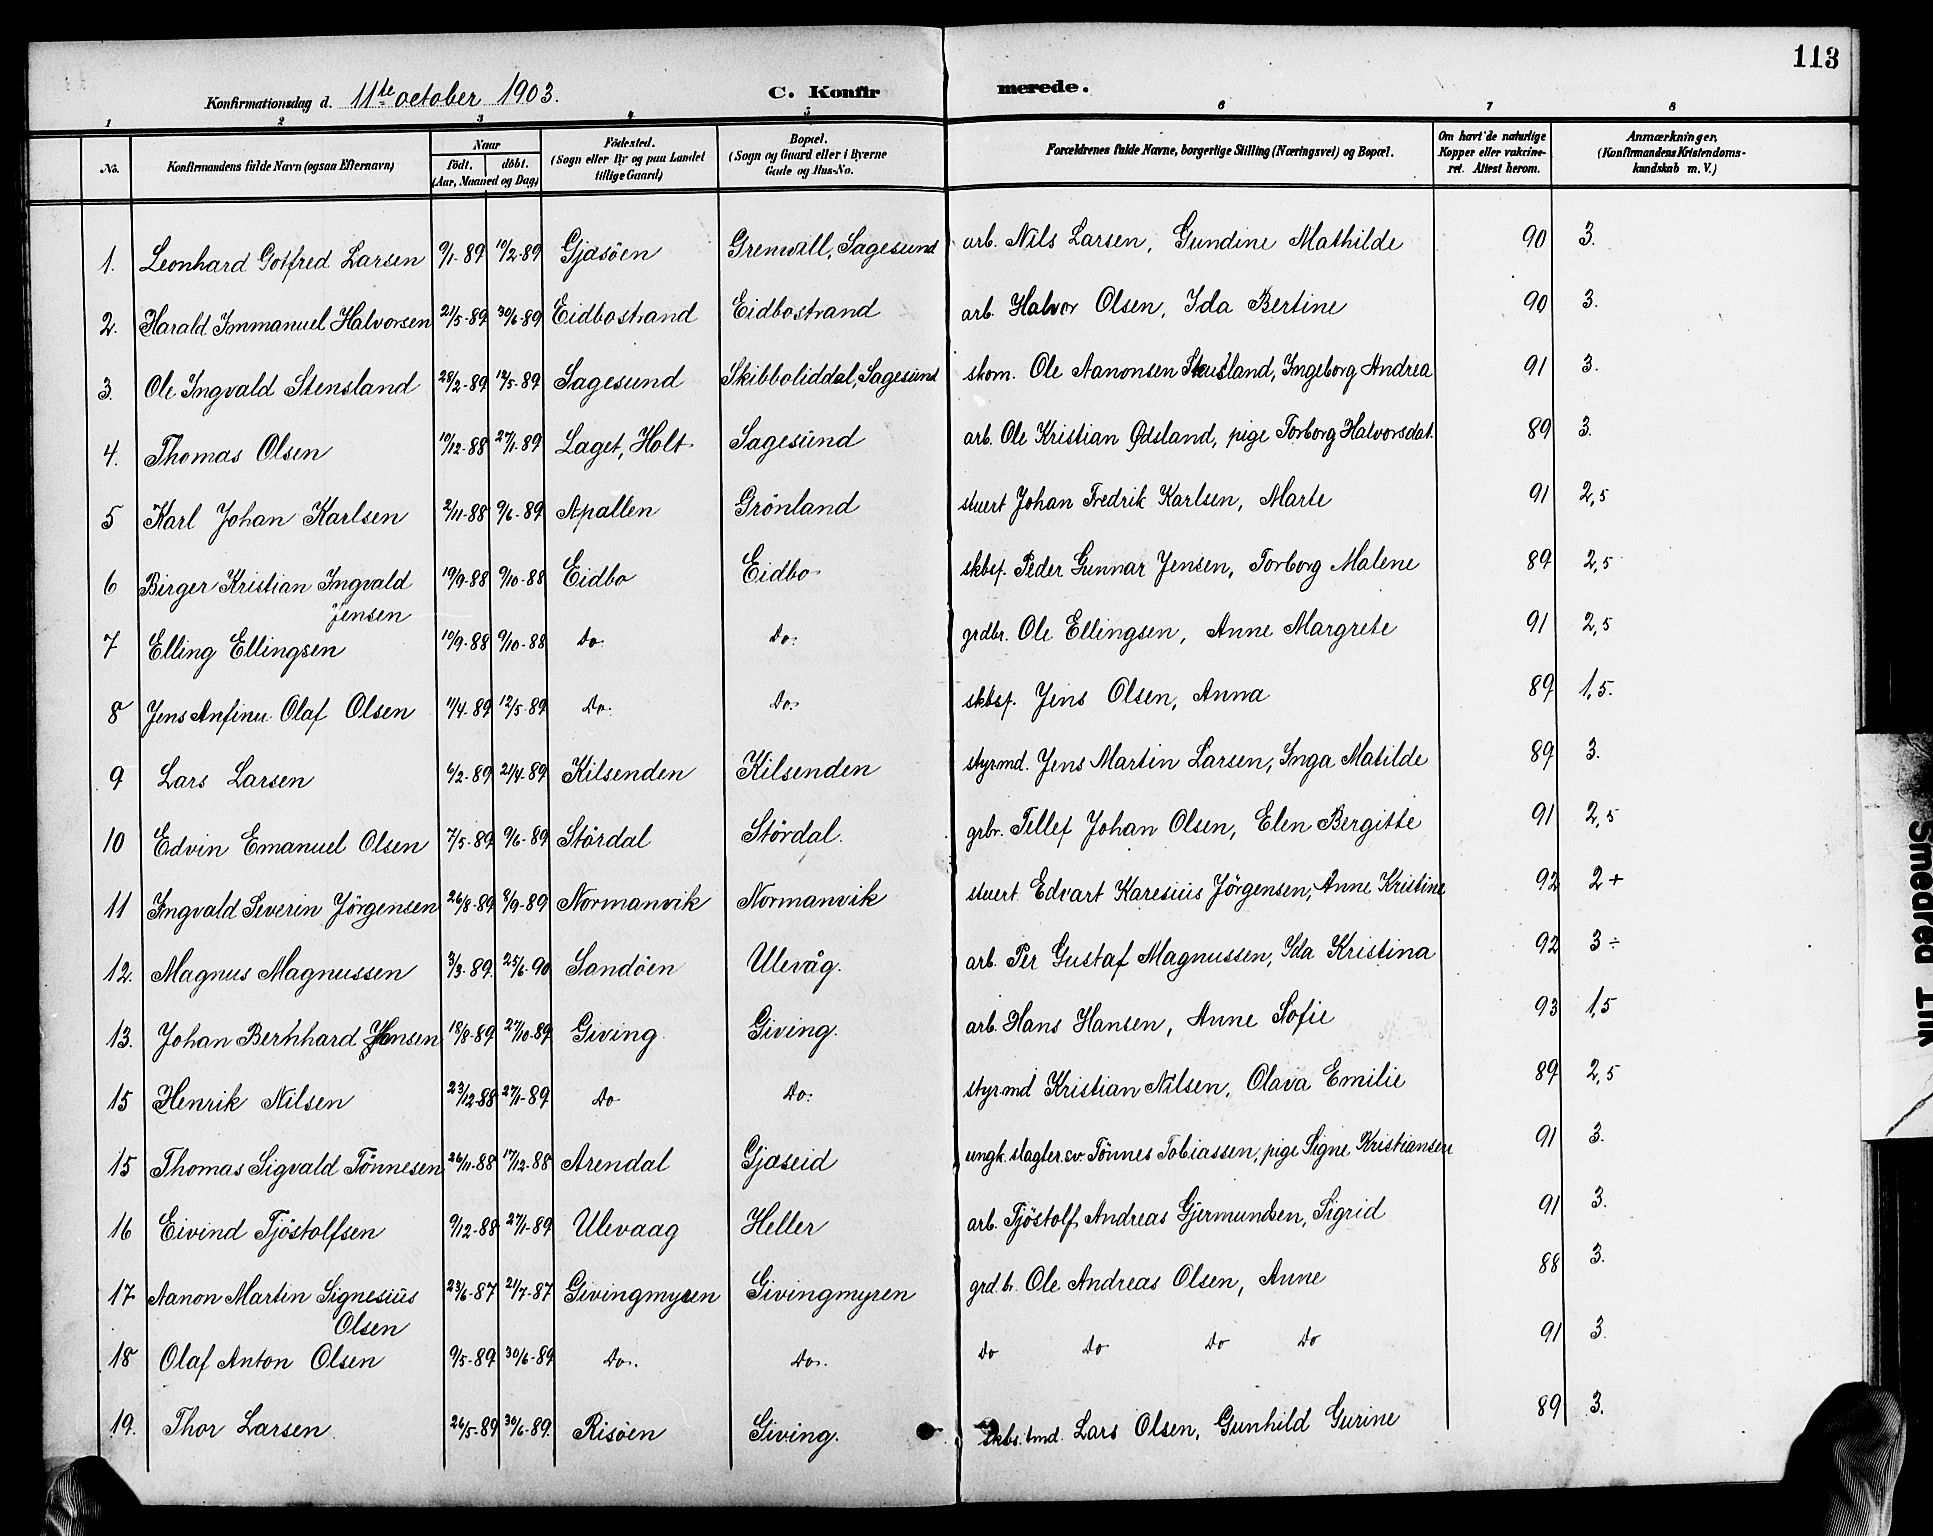 113
Konfirmationsdag d. 11te october 1903. C. Konfirmerede.
1 2 3 4 5 6 7 8
No. Konfirmandens fulde Navn (ogsaa Efternavn) Naar født. døbt. (Aar, Maaned og Dag) Fødested. (Sogn eller By og paa Landet tillige Gaard) Bopæl. (Sogn og Gaard eller i Byerne Gade og Hus-No. Forældrenes fulde Navne, borgerlige Stilling (Næringsvei) og Bopæl. Om havt de naturlige Kopper eller vakcineret. Attest herom. Anmærkninger. (Konfirmandens Kristendomskundskab m. V.)
1. Leonhard Gotfred Larsen 9/1-89 10/2-89 Gjasöen Grenwill, Sagesund arb. Nils Larsen, Gundine Mathilde 90 3.
2. Harald Immanuel Halvorsen 21/5-89 30/6-89 Eidbostrand Eidbostrand arb. Halvor Olsen, Ida Bertine 90 3.
3. Ole Ingvald Stensland 28/2-89 12/5-89 Sagesund Skibboliddal, Sagesund skom. Ole Aanonsen Stensland, Ingeborg Andrea 91 3.
4. Thomas Olsen 10/12-88 27/1-89 Laget, Holt Sagesund arb. Ole Kristian Ødsland, pige Torborg Halvorsdat. 89 3.
5 Karl Johan Karlsen 2/11-88 9/6-89 Apallen Grönland stuert Johan Fredrik Karlsen, Marte 91 2,5
6 Birger Kristian Ingvald Jensen 19/9-88 9/10-88 Eidbo Eidbo skbsf. Peder Gunnar Jensen, Torborg Malene 89 2,5
7 Elling Ellingsen 10/9-88 9/10-88 Do. Do. grdbr. Ole Ellingsen, Anne Margrete 91 2,5
8 Jens Anfinn Olaf Olsen 11/4-89 12/5-89 Do. Do. skbsf. Jens Olsen, Anna 89 1,5.
9 Lars Larsen 6/2-89 21/4-89 Kilsenden Kilsenden styrmd. Jens Martin Larsen, Inga Matilde 89 3.
10 Edvin Emanuel Olsen 7/5-89 9/6-89 Stördal Stördal. grbr. Tellef Johan Olsen, Elen Bergitte 91 2,5
11 Ingvald Severin Jörgensen 26/8-89 8/9-89 Normanvik Normanvik stuert. Edvart Karesius Jörgensen, Anne Kristine 92 2+
12. Magnus Magnussen 3/3-89. 25/6-90 Sandöen Ulevåg. arb. Per Gustaf Magnussen, Ida Kristina 92 3÷
13. Johan Bernhard Hansen 18/8-89 27/10-89 Giving Giving. arb. Hans Hansen, Anne Sofie 93 1,5
15 Henrik Nilsen 23/12-88 27/1-89 Do Do. styrmd Kristian Nilsen, Olava Emilie 89 2,5
15 Thomas Sigvald Tönnesen 26/11-88 17/12-88 Arendal Gjaseid ungk. slagter.sv. Tönnes Tobiassen, pige Signe Kristiansen 91 3.
16 Eivind Tjöstolfsen 9/12-88 27/1-89 Ulevaag Heller arb. Tjöstolf Andreas Gjermundsen, Sigrid 91 3.
17 Aanon Martin Signesius Olsen 23/6-87 21/7-87 Givingmyren Givingmyren grd.b. Ole Andreas Olsen, Anne 88 3.
18 Olaf Anton Olsen 9/5-89 30/6-89 Do. Do. Do Do Do Do 91 3.
19. Thor Larsen 26/5-89 30/6-89. Risöen Giving. skbs.tmd. Lars Olsen, Gunhild Gurine 89 3.
Smeared Ink